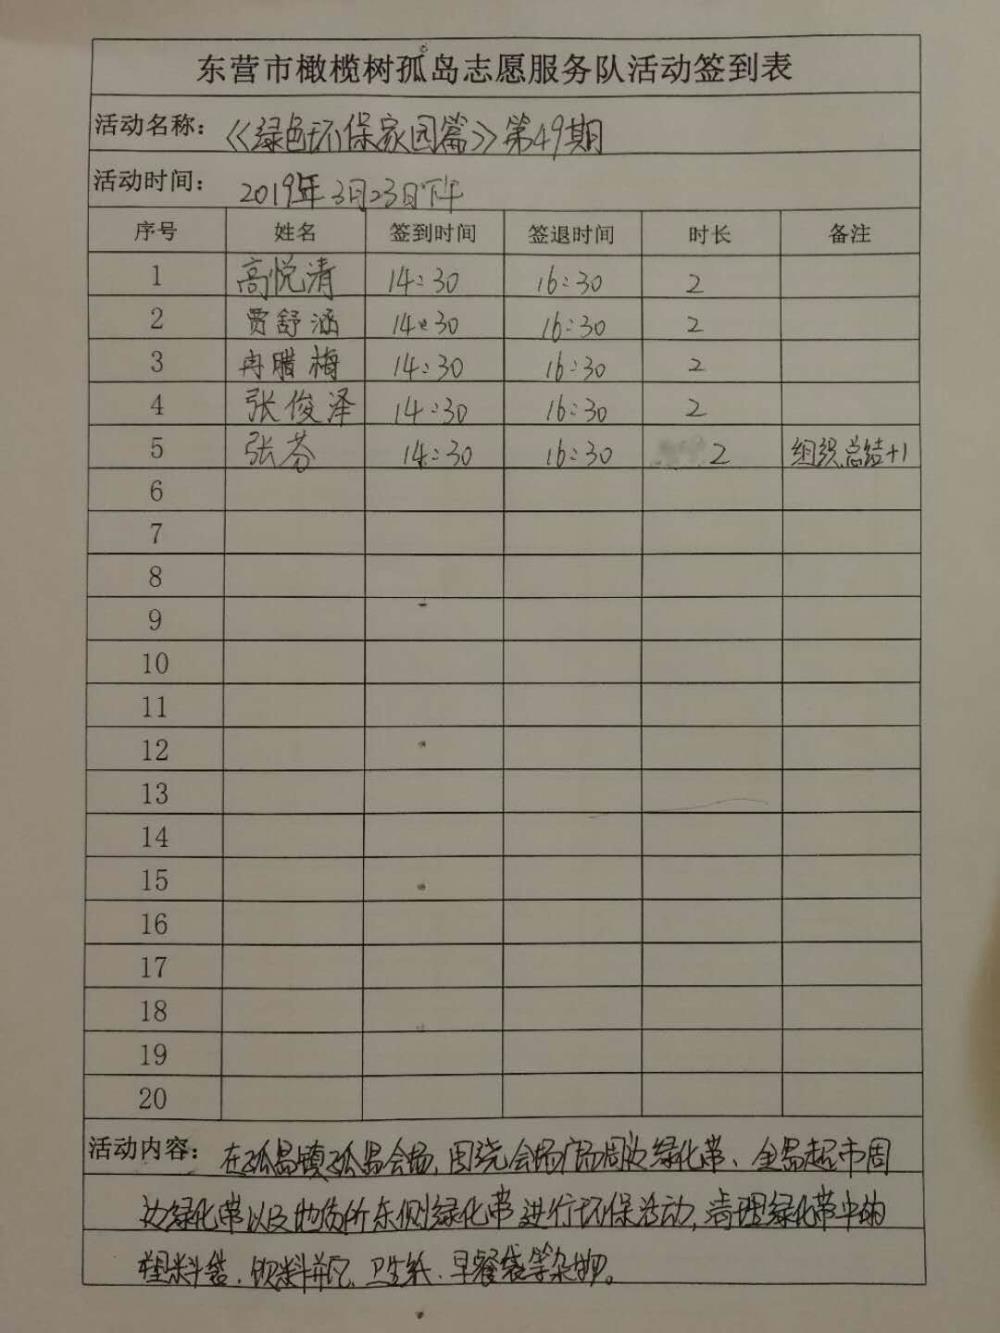 东营市橄榄树孤岛志愿服务队活动签到表
活动名称：《绿色环保家园篇》第49期
活动时间：2019年3月23日下午
序号 姓名 签到时间 签退时间 时长 备注
1 高悦清 14:30 16:30 2
2 贾舒涵 14:30 16:30 2
3 冉腊梅 14:30 16:30 2
4 张俊泽 14:30 16:30 2
5 张芬 14:30 16:30 2 组织,总结+1
6
7
8
9
10
11
12
13
14
15
16
17
18
19
20
活动内容：在孤岛镇孤岛会场,围绕会场广场周边绿化带、全岛超市周
边绿化带以及地质所东侧绿化带进行环保活动,清理绿化带中的
塑料袋、饮料瓶、卫生纸、早餐袋等杂物。